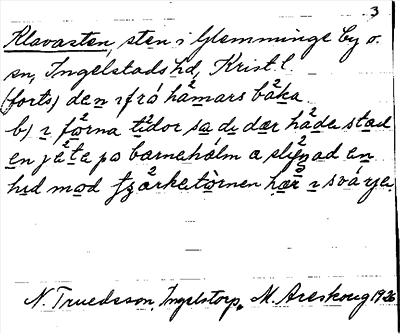 3
Klavasten, sten i Glemminge by o.
sn, Ingelstads hd, Krist. l.
(forts) den ifró hâmars bâka.
b) i förna tidor sa de dær håde stad
en jête po barnahólm a slynad en
hid mod tjærketòrnen hær i sværje.
N. Truedsson, Ingelstorp, M. Areskoug 1926